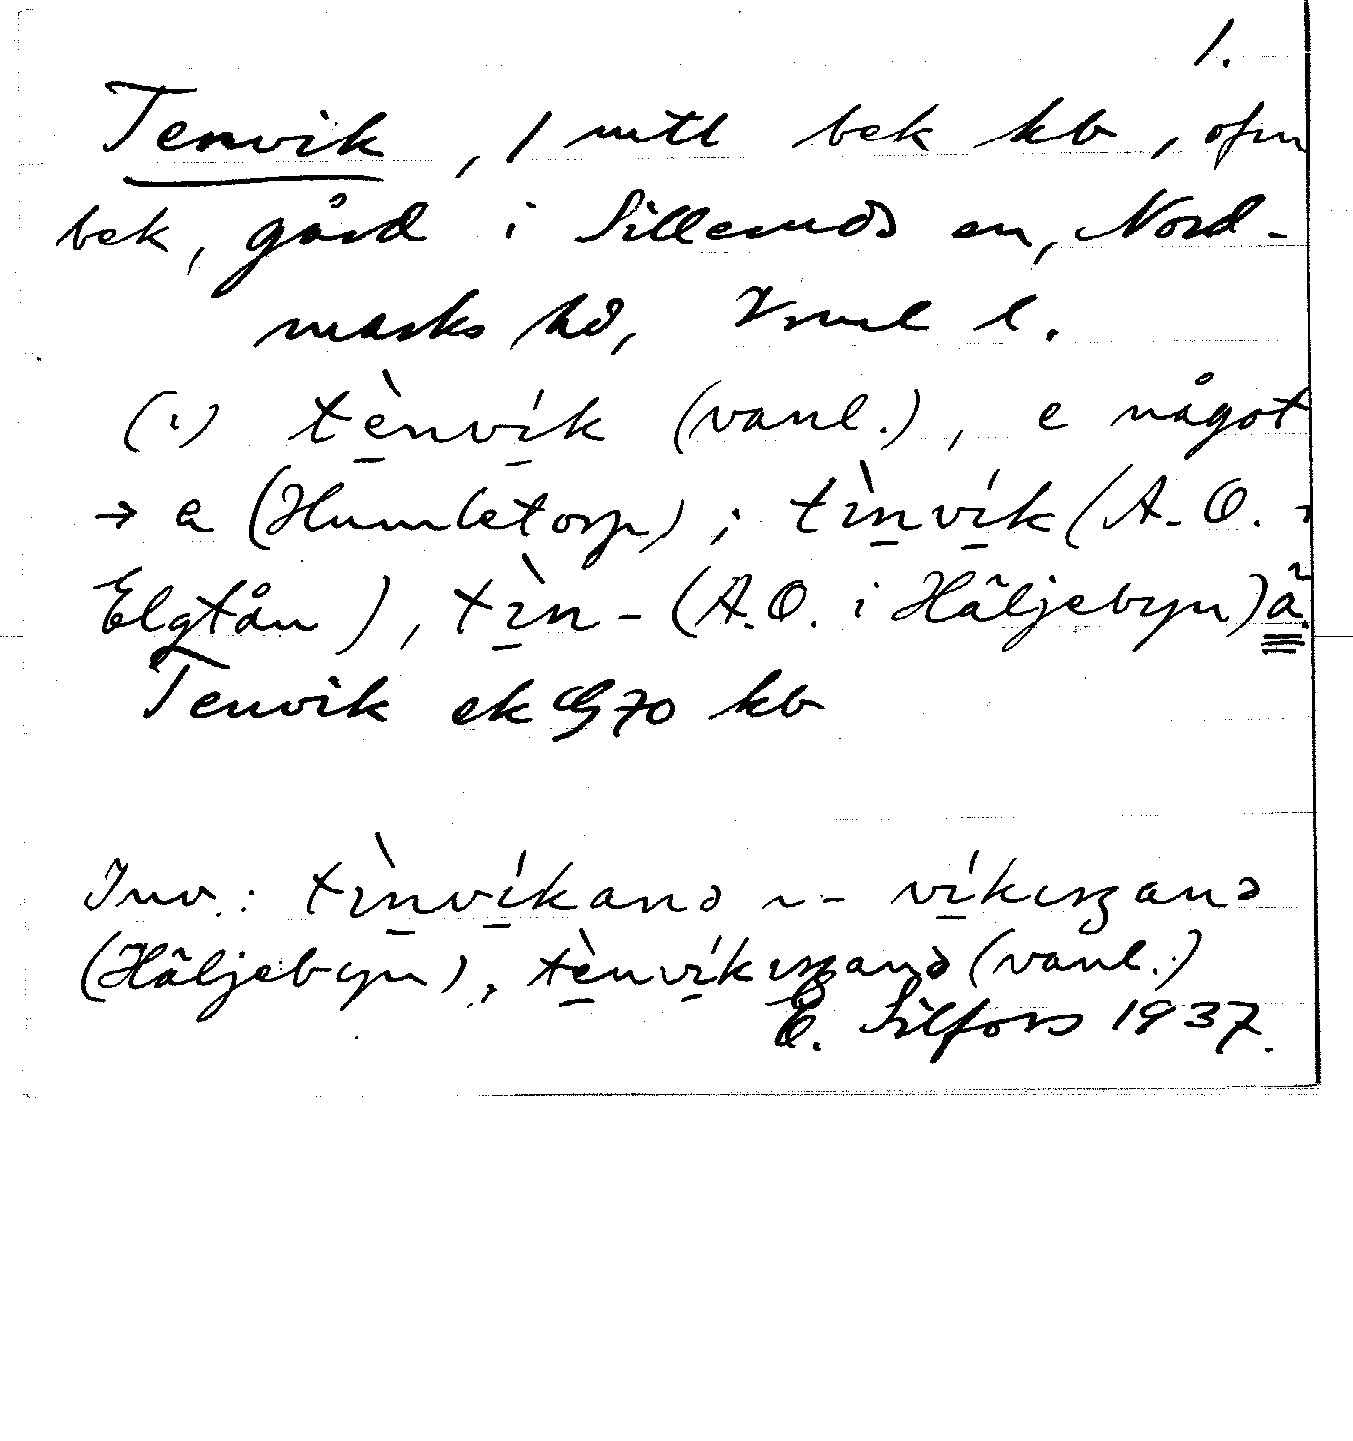 1.
Tenvik, 1 mtl bek kb, ofm
bek, gård i Silleruds sn, Nord-
marks hd, Vrml l.
(i) tènvík (vanl.), e något
→ a (Humletorp); tìnvík (A. O. i
Elgtån), tìn- (A.O. i Häljebyn) å
Tenvik ek 970 kb
Inv.: tìnvíkanə ~ - víkıŋanə
(Häljebyn), tènvíkıŋanə (vanl.)
E. Silfors 1937.